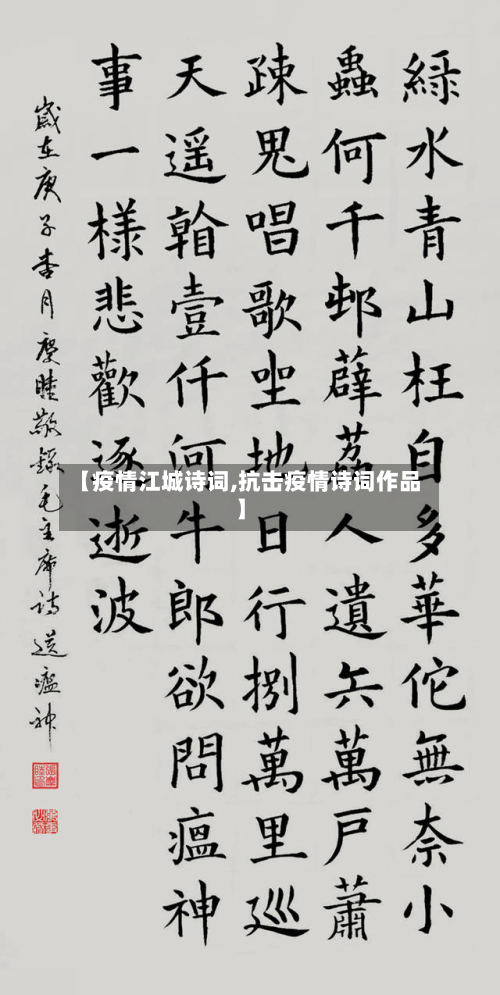 綠水青山枉自多華佗無奈小
蟲何千邨薜荔人遺矢萬戶蕭
疎鬼唱歌坐地日行捌萬里巡
天遥看壹仟河牛郎欲問瘟神
事一樣悲歡逐逝波
歲在庚子杏月慶睦敬錄毛主席詩送瘟神
【疫情江城诗词,抗击疫情诗词作品
】